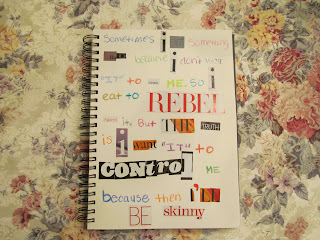 Sometimes i something
because i don't want
"IT" to ME. SO i
eat to REBEL
it. But THE TRUTH
is i want "IT" to
CONtrol ME
because then i'll
BE skinny